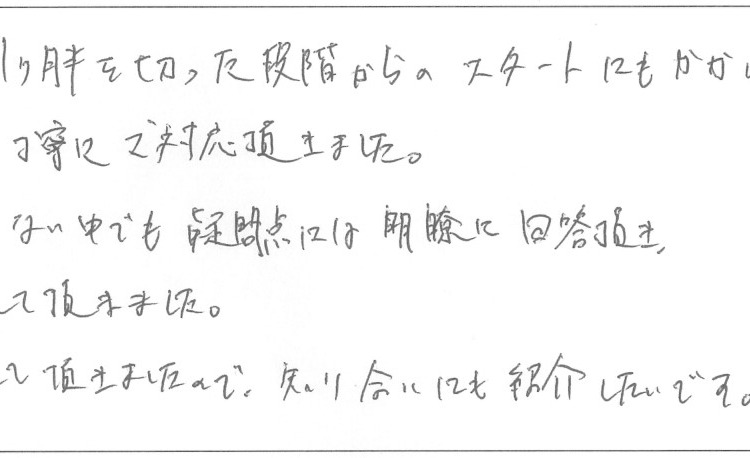 1ヶ月半を切った段階からのスタートにもかか
丁寧にご対応頂きました。
ない中でも疑問点には明瞭に回答頂き、
て頂きました。
て頂きましたので、知り合いにも紹介したいです。